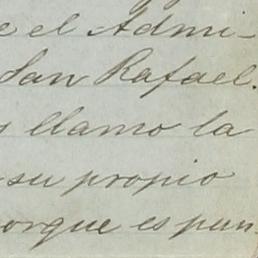 e el Admi-
San Rafael.
s llamo la
su propio
orque es pun-